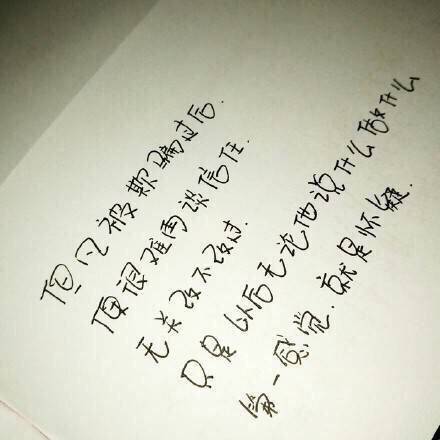 但凡被欺骗过后.
便很难再谈信任
无关改不改过.
只是以后无论他说什么做什么
第一感觉.就是怀疑.